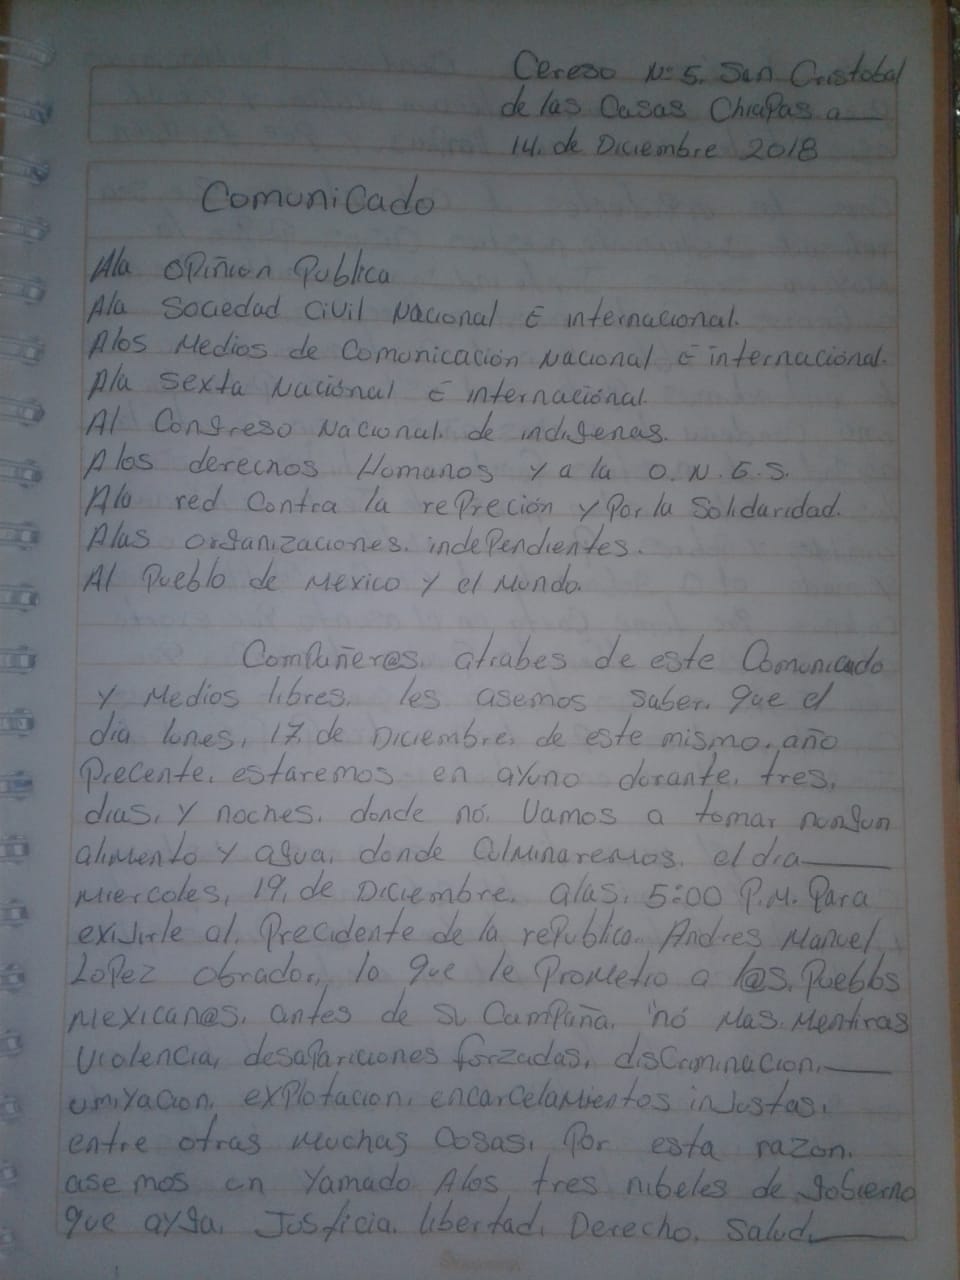 Cereso Nº 5. San Cristobal
de las Casas Chiapas a
14. de Diciembre 2018
Comunicado
Ala opinion Publica
Ala Sociedad Civil Nacional E internacional.
Alos Medios de Comunicación Nacional E internacional.
Ala Sexta Nacional E internacional.
Al Congreso Nacional. de indigenas.
A los derechos Homanos y a la O.N.G.S.
Ala red Contra la rePreción y Por la Solidaridad.
Alas organizaciones. independientes.
Al Pueblo de Mexico y el Mundo.
Compañer@s. atrabes de este Comunicado
y Medios libres. les asemos saber. que el
dia lunes, 17, de Diciembre. de este mismo. año
Precente. estaremos en ayuno dorante. tres.
dias. y noches. donde nó. Vamos a tomar. nongun
alimento y agua. donde Colminaremos. el dia
Miercoles, 19, de Diciembre. alas. 5:00 P.M. Para
exijirle al. Precidente de la republica. Andres Manuel
Lopez obrador., lo que le Prometio a l@s. Pueblos
Mexican@s. antes de su Campaña. nó Mas. Mentiras
Violencia, desapariciones forzadas. discriminacion.
umiyacion. explotacion. encarcelamientos injostas.
entre otras muchas Cosas. Por esta razon.
asemos un Yamado Alos tres nibeles de gobierno
que ayga. Josticia. libertad. Derecho. Salud.